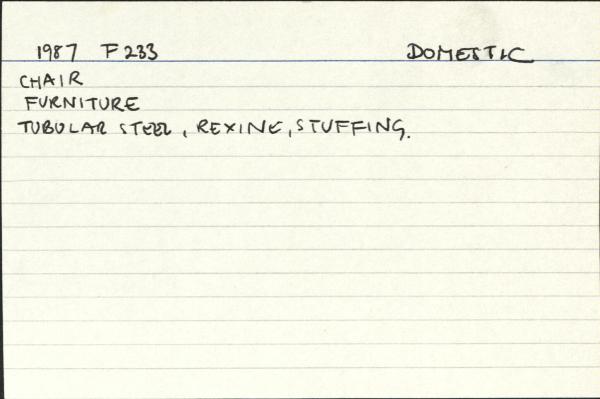 1987 F 233 DOMESTIC
CHAIR
FURNITURE
TUBULAR STEEL, REXINE, STUFFING.